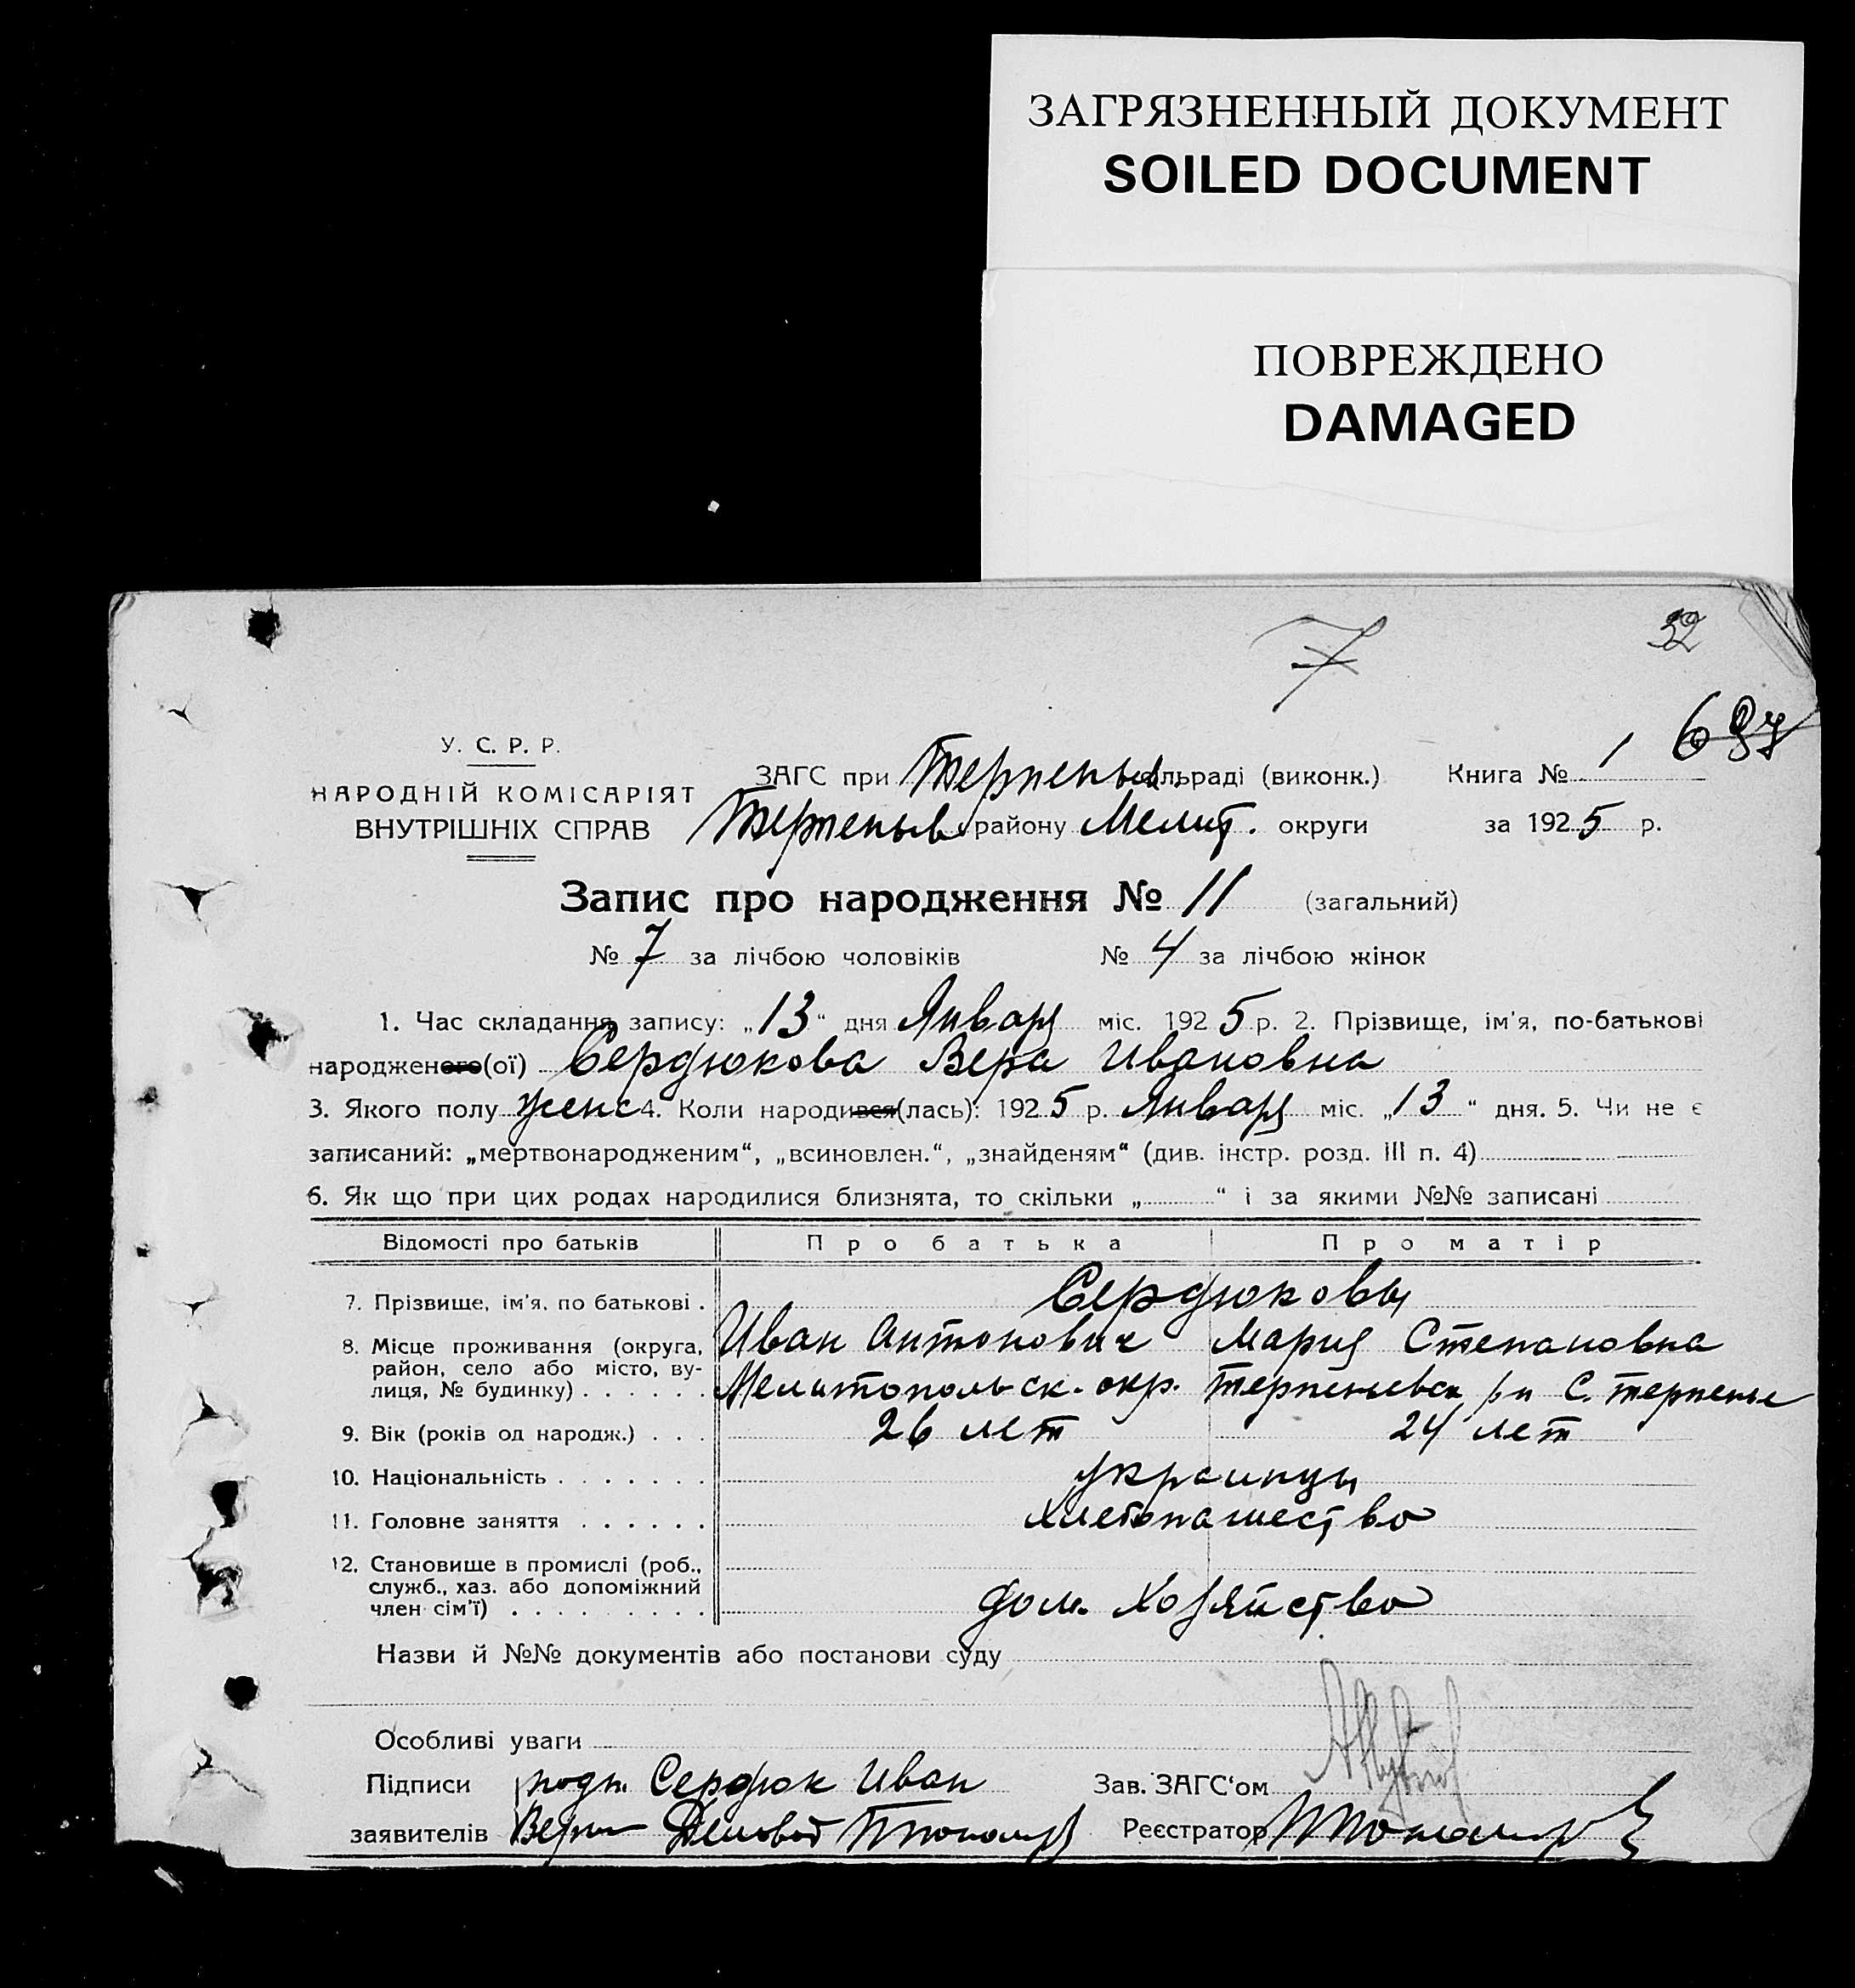 ЗАГРЯЗНЕННЫЙ ДОКУМЕНТ
SOILED DOCUMENT
ПОВРЕЖДЕНО
DAMAGED
7
32
697
У. С. Р. Р.
НАРОДНІЙ КОМІСАРІЯТ
ВНУТРІШНІХ СПРАВ
ЗАГС при Терпеньев. сільраді (виконк.) Книга № 1
Терпеньев району Мелит. округи за 1925 р.
Запис про народження № 11 (загальний)
№ 7 за лічбою чоловіків № 4 за лічбою жінок
1. Час складання запису: „13" дня Января міс. 1925 р. 2. Прізвище, ім'я, по-батькові
народженого(ої) Сердюкова Вера Ивановна
3. Якого полу женс 4. Коли народився(лась): 1925 р. Января міс. „13" дня. 5. Чи не є
записаний: „мертвонародженим", „всиновлен.", „знайденям" (див. інстр. розд. III п. 4)
6. Як що при цих родах народилися близнята, то скільки „ " і за якими №№ записані
Відомості про батьків Про батька Про матір
7. Прізвище, ім'я, по батькові . Сердюковы
8. Місце проживання (округа, Иван Антонович Мария Степановна
район, село або місто, ву-
лиця, № будинку) . . . . . . Мелитопольск. окр. Терпеньевск рн С. Терпенье
9. Вік (років од народж.) . . . 26 лет 24 лет
10. Національність . . . . . . . украинцы
11. Головне заняття . . . . . . Хлебопашество
12. Становище в промислі (роб.,
служб., хаз. або допоміжний
член сім'ї) . . . . . . . . . дом. Хозяйство
Назви й №№ документів або постанови суду
Особливі уваги
Підписи подп. Сердюк Иван Зав. ЗАГС'ом
заявителів Верно Реєстратор